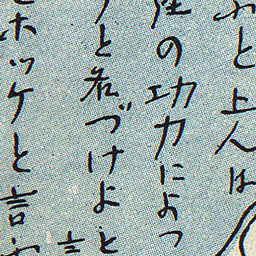 と上人は
の功力によっ
と名づけよと
ホッケと言